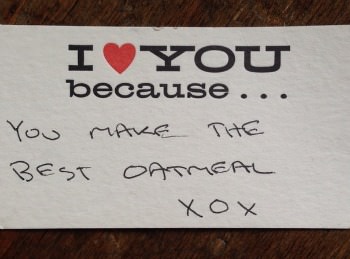 I ♥ YOU
because...
YOU MAKE THE
BEST OATMEAL
XOX